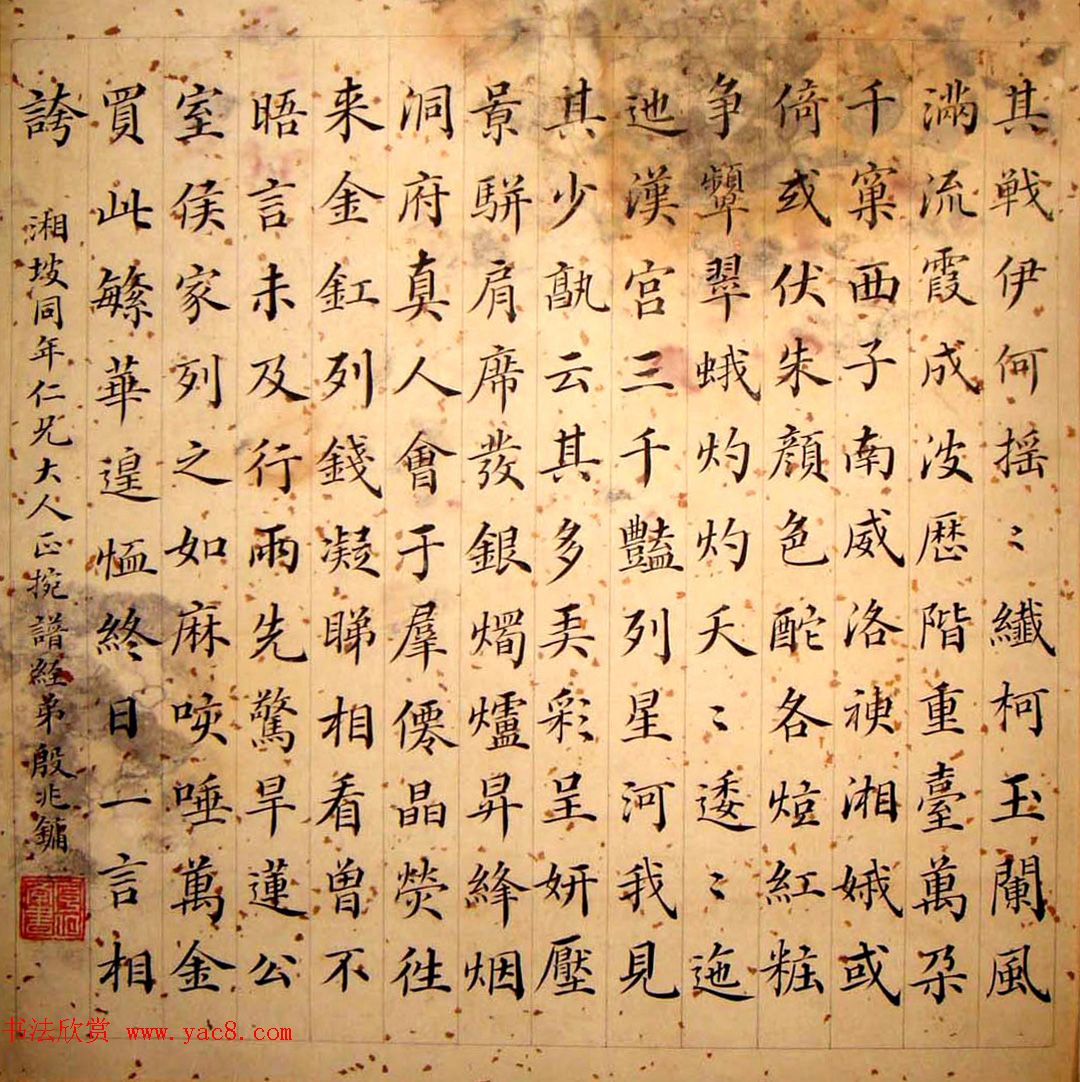 其戦伊何搖〻纖柯玉闌風
滿流霞成波歷階重臺萬朶
千窠西子南威洛神湘娥或
倚或伏朱顏色酡各炫紅粧
争顰翠蛾灼灼夭〻逶〻迤
迆漢宮三千豔列星河我見
其少孰云其多弄彩呈妍壓
景駢肩席發銀燭爐昇絳烟
洞府真人會于羣僊晶熒往
来金釭列錢凝睇相看曾不
晤言未及行雨先驚旱蓮公
室侯家列之如麻咳唾萬金
買此繁華遑恤終日一言相
誇
湘坡同年仁兄大人正捥譜經弟殷兆鏞
书法欣赏 www.yac8.com